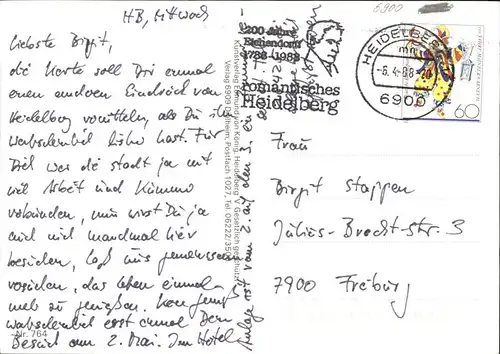 HB, Mittwoch
Liebste Birgit,
die Karte soll Dir einmal
einen anderen Eindruck von
Heidelberg vermitteln, als Du ihn
wahrscheinlich bisher hast. Für
Dich war die Stadt ja mit
viel Arbeit und Kummer
verbunden, nun wirst Du ja
mich manchmal hier
besuchen, laß uns gemeinsam
versuchen, das Leben einmal
mehr zu genießen.
wahrscheinlich erst einmal Dein
Besuch am 2. Mai. Im Hotel
Nr. 764
vom 2. auf den 3. ein
Kunstverlag Edmund von König, Heidelberg
Verlag 6909 Dielheim, Postfach 1027, Tel. 06222/
Gesetzlich geschützt
200 Jahre
Eichendorff
1788-1988
romantisches
Heidelberg
6900
HEIDELBERG
mn
-5.4.88
6900
60
Frau
Birgit Stappen
Julius-Brecht-Str. 3
7900 Freiburg